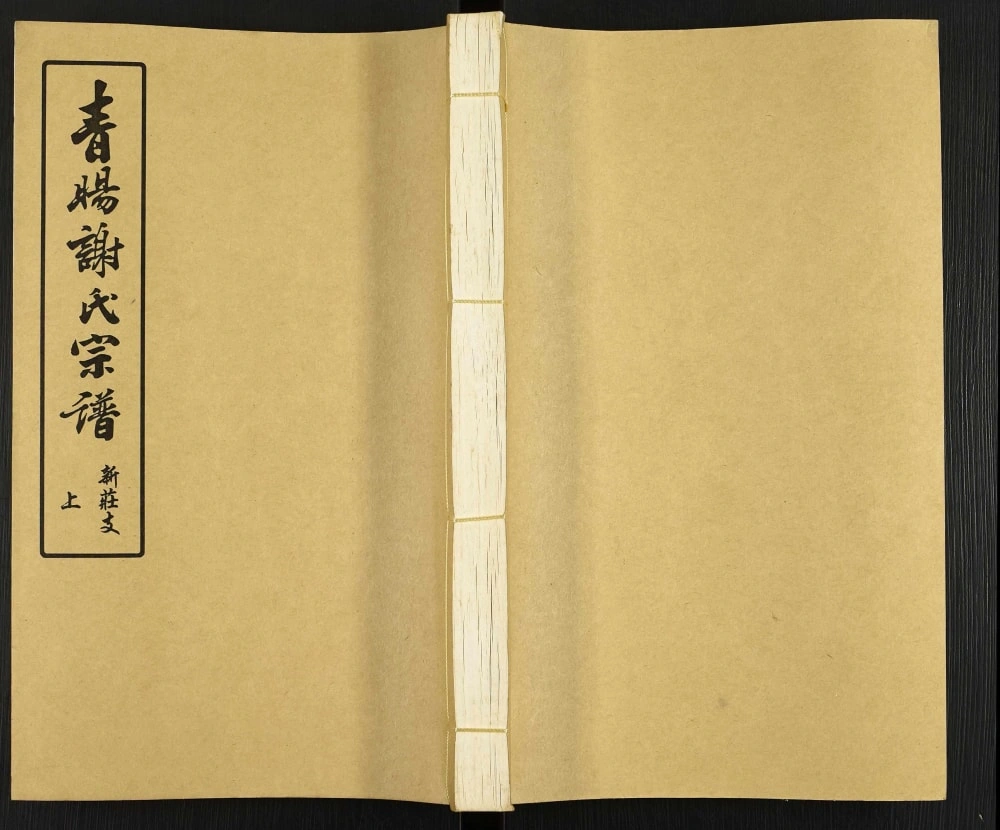 青暘謝氏宗譜
新莊支
上